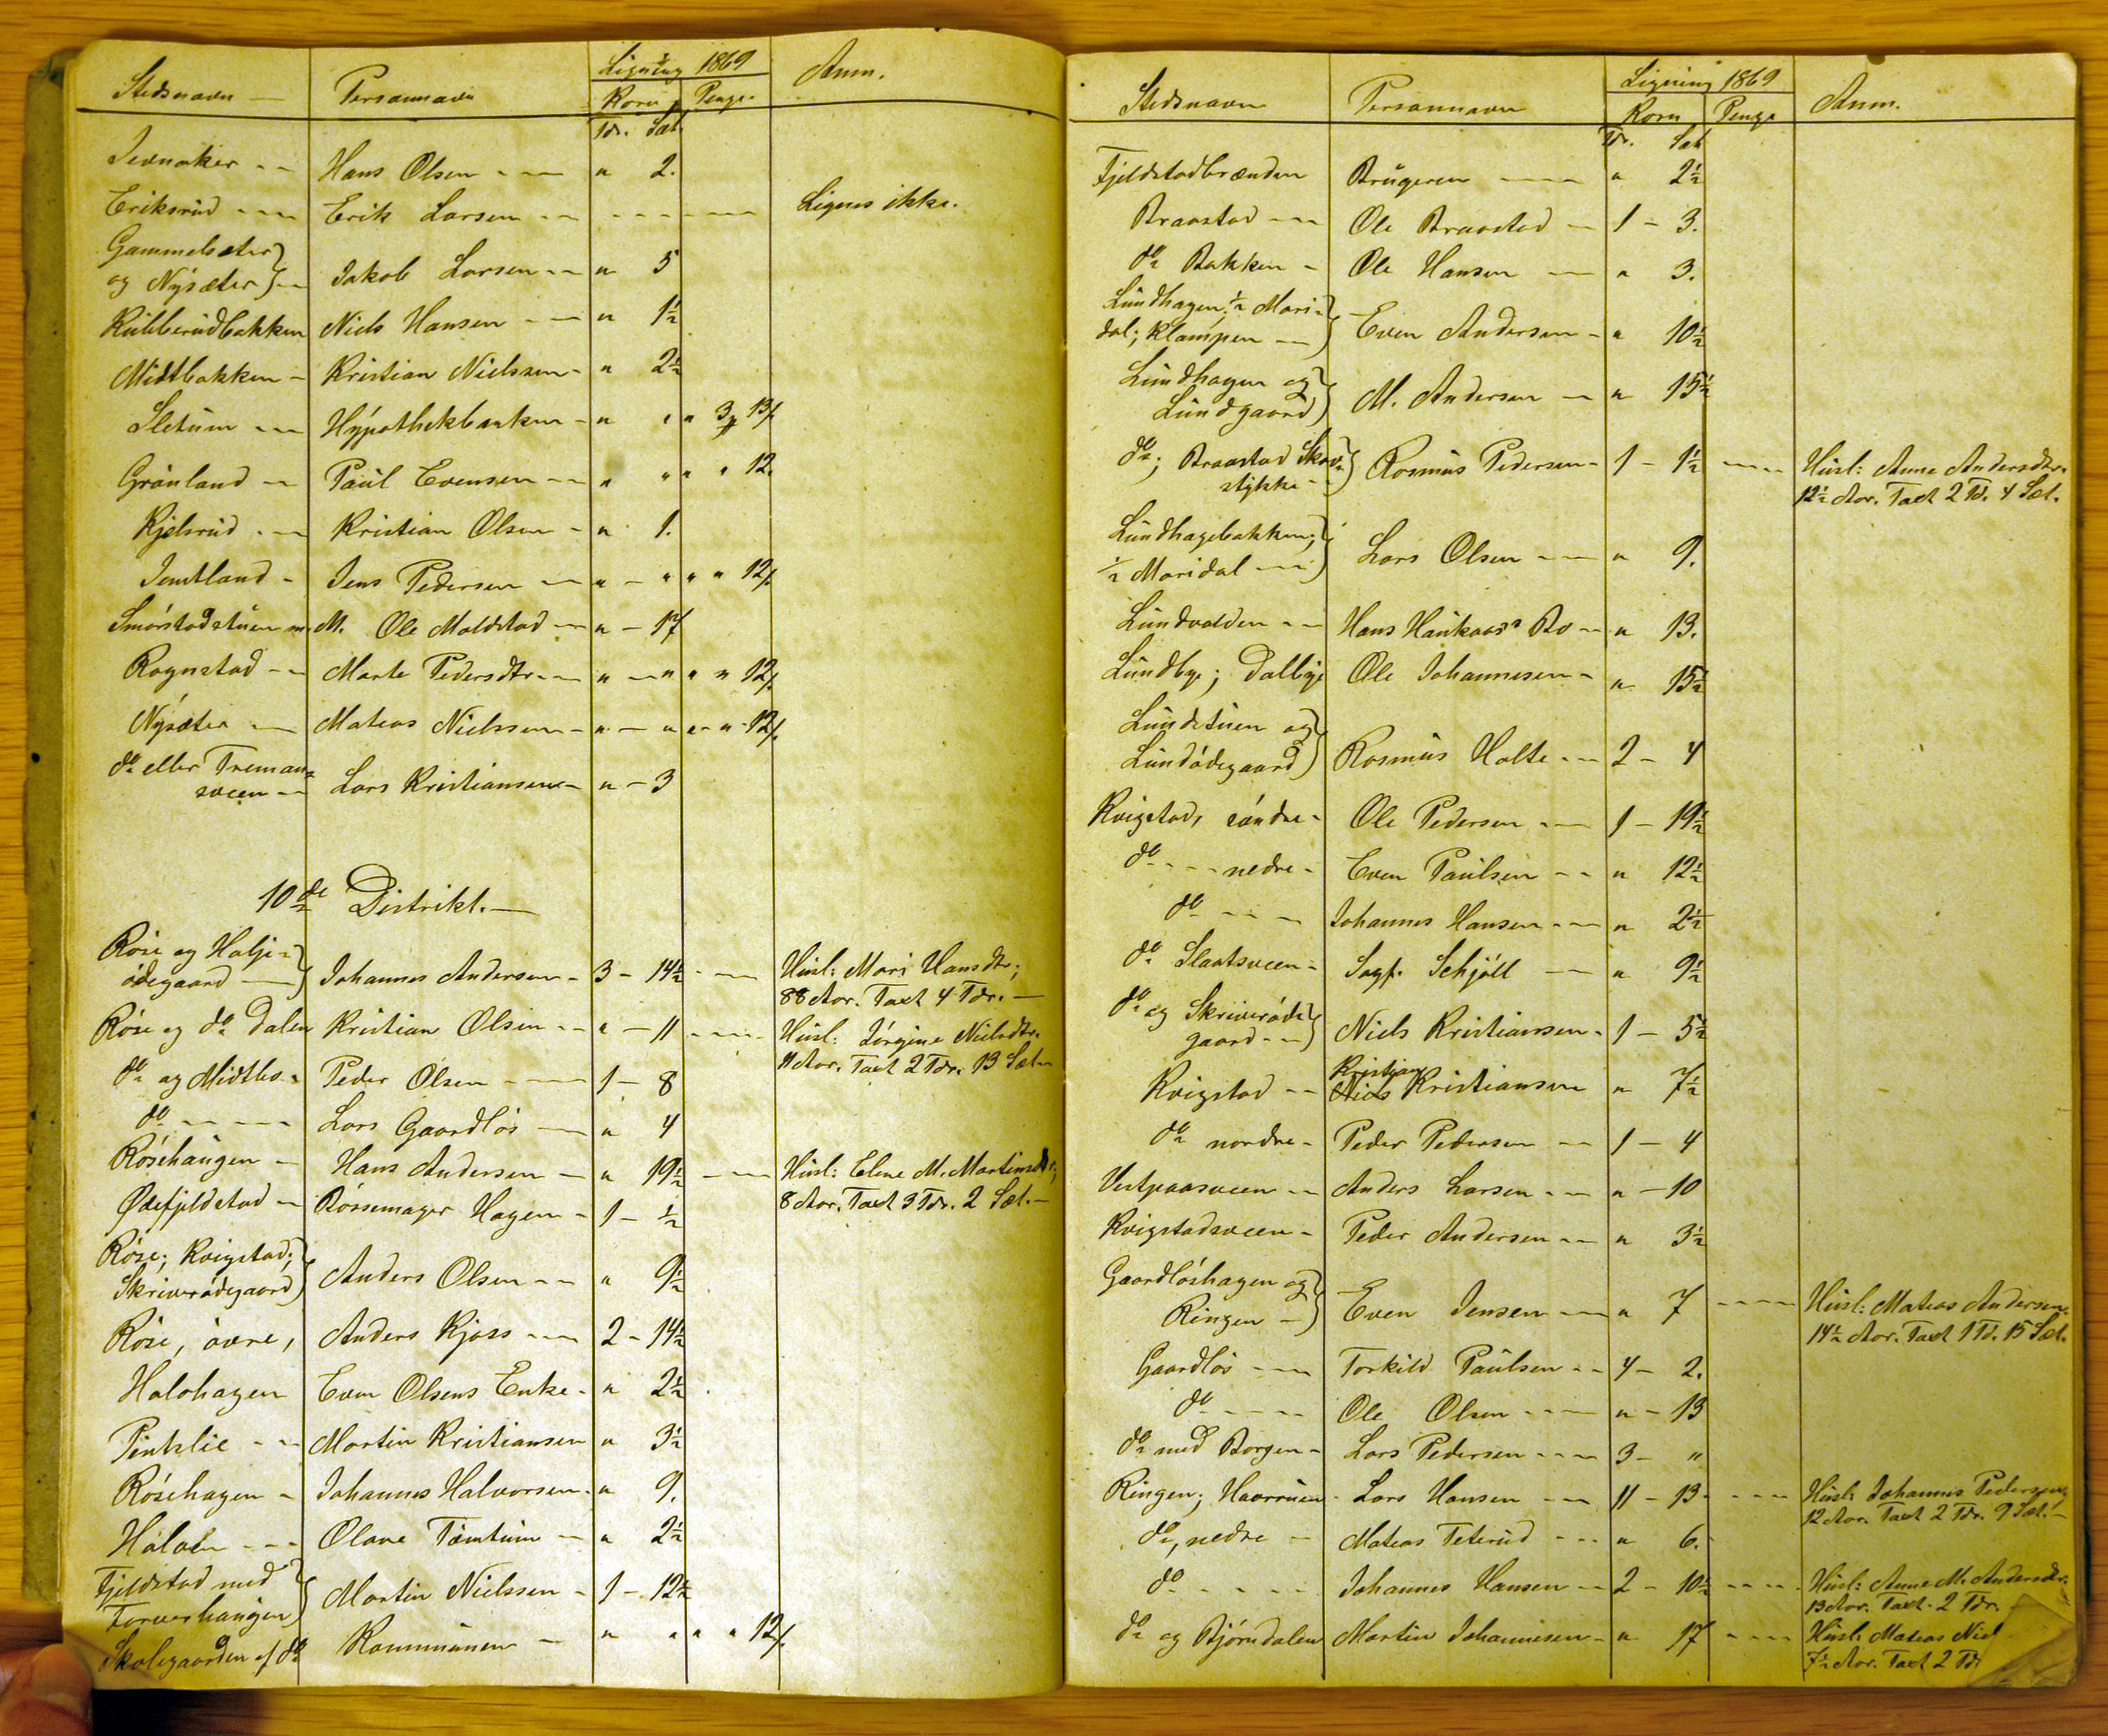 Stedsnavn — Personnavn Ligning 1869 Anm.
Korn Penge.
Tdr. Sæt.
Jevnaker -- Hans Olsen --- " 2.
Eriksrud --- Erik Larsen -- ------ Lignes ikke.
Gammelsæter
og Nysæter -- Jakob Larsen -- " 5
Kubberudbakken Niels Hansen -- " 1½
Midtbakken - Kristian Nielssen - " 2½
Sletum -- Hypothekbanken - " " " 3 13/
Grönland -- Paul Evensen -- " " " " 12.
Kjelsrud -- Kristian Olsen - " 1.
Jemtland - Jens Pedersen -- " - " " " 12/
Smörstadstuen m. M. Ole Moldstad -- " - 17
Rognstad -- Marte Pedersdtr. -- " - " " " 12/
Nysæter -- Mateas Nielssen - " - " " - " - 12/
do eller Tremans-
sveen -- Lars Kristiansen - " - 3
10de Distrikt. —
Röse og Halje-
ödegaard — Johannes Andersen - 3 - 14½ --- Husl: Mari Hansdtr;
88 Aar. Taxt 4 Tdr. —
Röse og do Dalen Kristian Olsen -- " - 11 ---- Husl: Jörgine Nielsdtr.
11 Aar. Taxt 2 Tdr. 13 Sæt -
do og Midtbo - Peder Olsen --- 1 - 8
do ---- Lars Gaardlös — " 4
Rösehaugen - Hans Andersen — " 19½ --- Husl: Elene M. Martinsdtr;
8 Aar. Taxt 3 Tdr. 2 Sæt. -
Ödefjeldstad - Börsemager Hagen - 1 - ½
Röse; Kvigstad;
Skriverödegaard Anders Olsen -- " 9½
Röse, övre, Anders Kjos --- 2 - 14½
Halohagen Even Olsens Enke - " 2½
Pintslie -- Martin Kristiansen " 3½
Rösehagen - Johannes Halvorsen - " 9.
Holoen --- Olave Tömtum - " 2½
Fjeldstad med
Torverhaugen Martin Nielssen - 1 - 12½
Skolegaarden af do Kommunen - " " " " 12/
Stedsnavn Personnavn Ligning 1869 Anm.
Korn Penge
Tdr. Sæt
Fjeldstadbrænden Brugeren --- " 2½
Braastad -- Ole Braastad - 1 - 3.
do Bakken - Ole Hansen -- " 3.
Lundhagen; ½ Mari-
dal; Klampen -- Even Andersen - " 10½
Lundhagen og
Lundgaard M. Andersen -- " 15½
do; Braastad Skov-
stykke -- Rasmus Pedersen - 1 - 1½ ---- Husl: Anne Andersdtr.
12½ Aar. Taxt 2 Td. 4 Sæt.
Lundhagebakken;
½ Maridal -- Lars Olsen -- " 9.
Lundvolden -- Hans Haukaas Bo - " 13.
Lundby; Dalbye Ole Johannesen - " 15½
Lundstuen og
Lundödegaard Rasmus Holte -- 2 - 4
Kvigstad, söndre - Ole Pedersen -- 1 - 19½
do --- nedre - Even Paulsen -- " 12½
do --- Johannes Hansen -- " 2½
do Slaatsveen - Sagf. Schjöll -- " 9½
do og Skriveröde-
gaard -- Niels Kristiansen - 1 - 5½
Kristian
Kvigstad -- Niels Kristiansen " 7½
do nordre - Peder Pedersen -- 1 - 4
Vestpaasveen -- Anders Larsen -- " - 10
Kvigstadsveen - Peder Andersen -- " 3½
Gaardlöshagen og
Ringen - Even Jensen -- " 7 ---- Husl: Mateas Andersen.
14½ Aar. Taxt 1 Td. 15 Sæt.
Gaardlös --- Torkild Paulsen -- 4 - 2.
do ---- Ole Olsen --- " - 13
do med Borgen - Lars Pedersen --- 3 - "
Ringen; Haarruen - Lars Hansen -- 11 - 13 ---- Husl: Johannes Pedersen,
12 Aar. Taxt 2 Tdr. 9 Sæt. -
do, nedre - Mateas Teterud --- " 6.
do ---- Johannes Hansen -- 2 - 10½ ---- Husl: Anne M. Andersdtr.
13 Aar. Taxt 2 Tdr. -
do og Björndalen Martin Johannesen - " 17 ---- Husl: Mateas Niel
7½ Aar. Taxt 2 Td